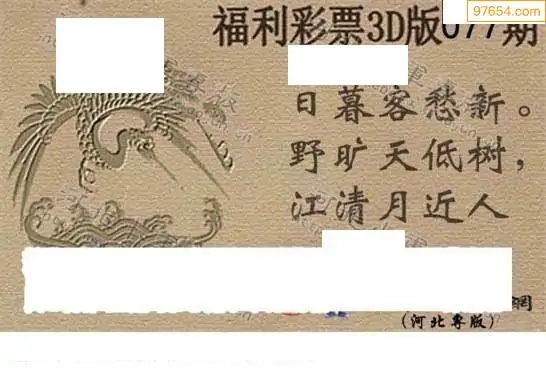 97654.com
福利彩票3D版077期
日暮客愁新。
野旷天低树，
江清月近人
網
(河北粤版)